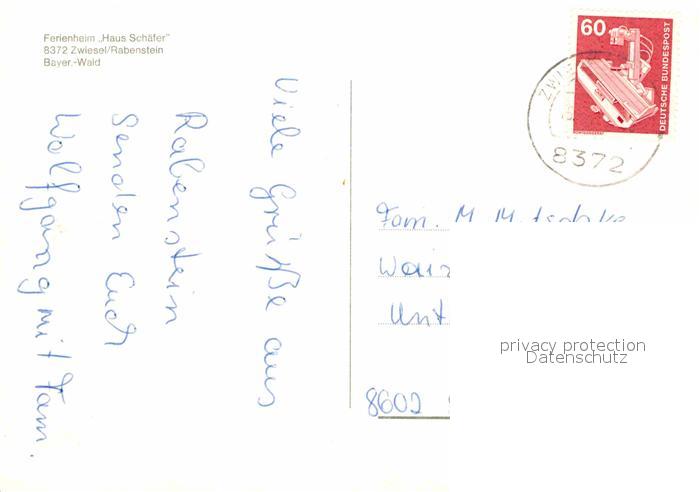 Ferienheim „Haus Schäfer"
8372 Zwiesel/Rabenstein
Bayer.-Wald
Viele Grüße aus
Rabenstein
Senden Euch
Wolfgang mit Fam.
60
DEUTSCHE BUNDESPOST
8372
Fam. M
8602
privacy protection
Datenschutz